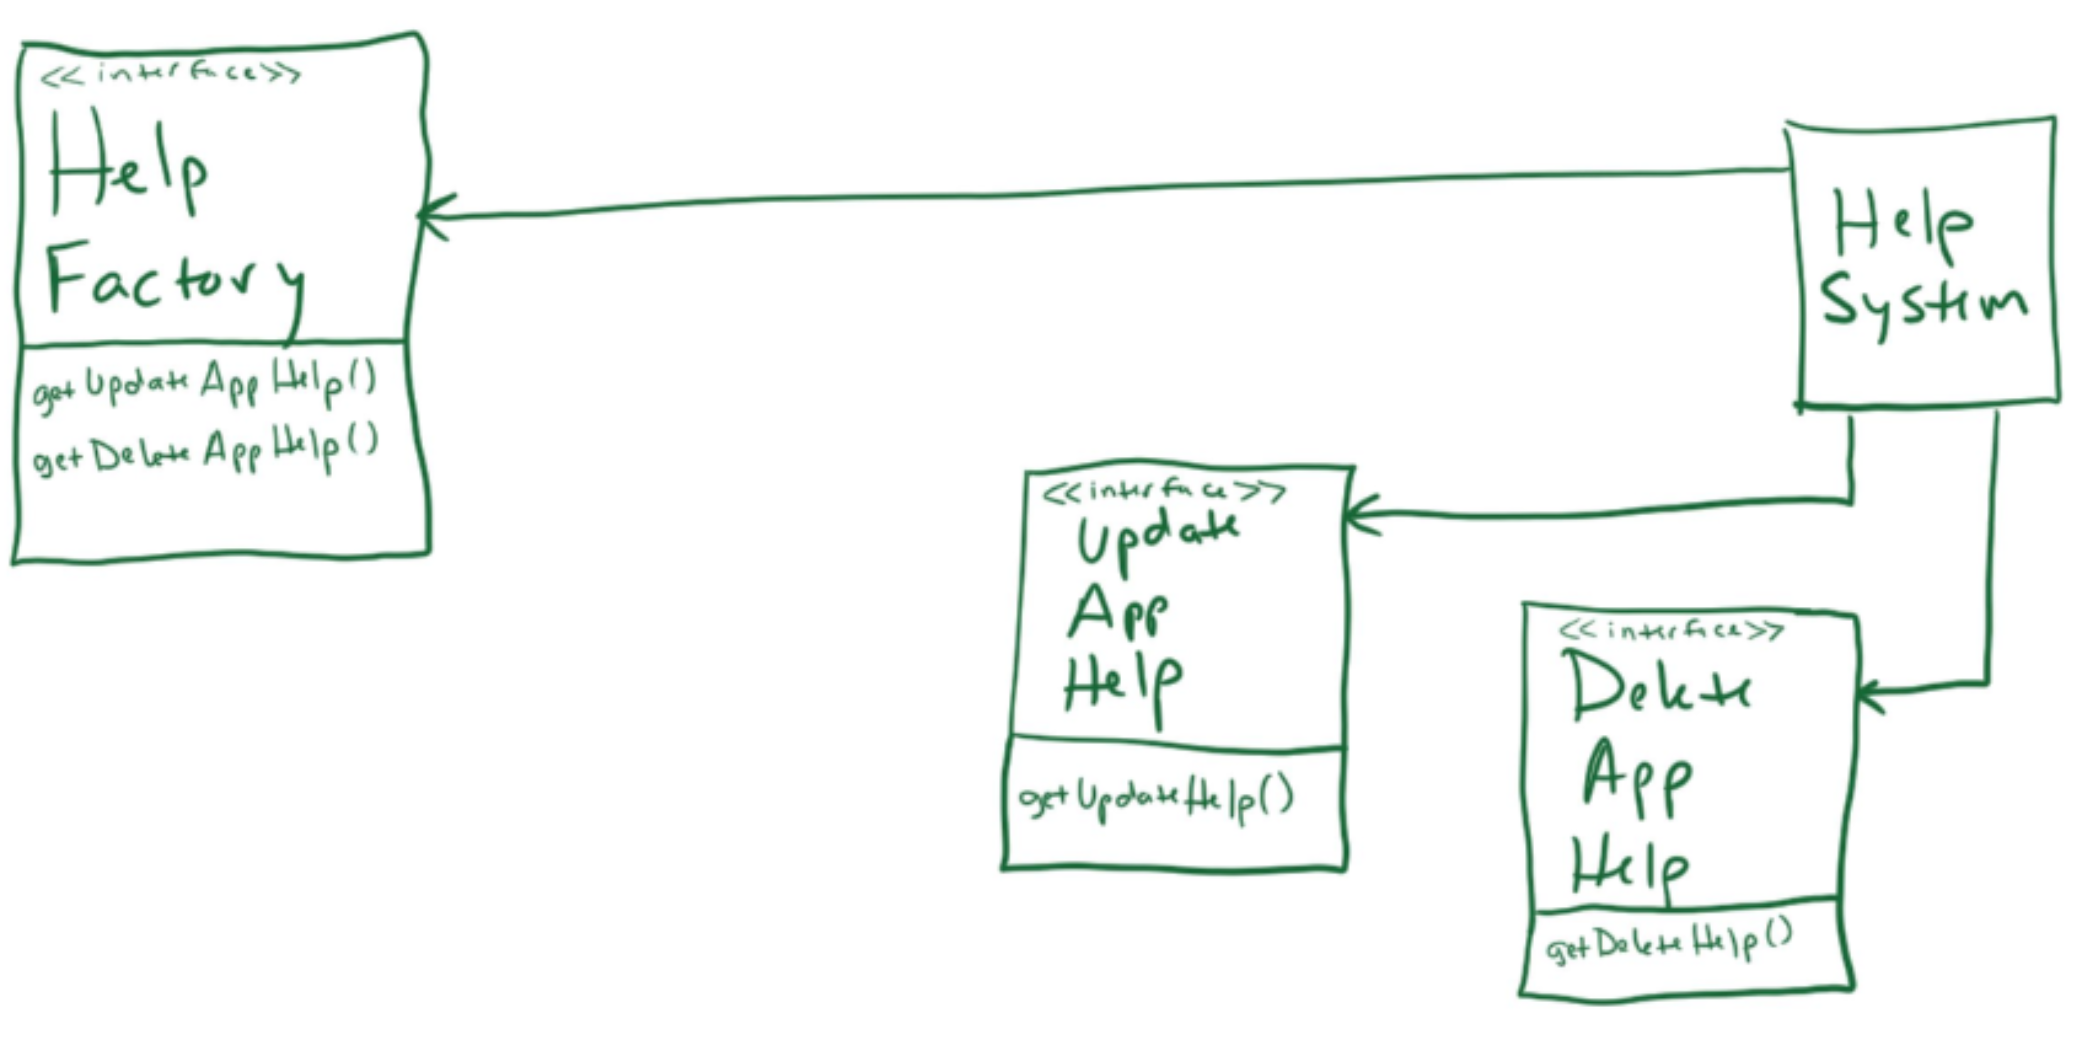 <<interface>>
Help
Factory
getUpdateAppHelp()
getDeleteAppHelp()
Help
System
<<interface>>
Update
App
Help
getUpdateHelp()
<<interface>>
Delete
App
Help
getDeleteHelp()